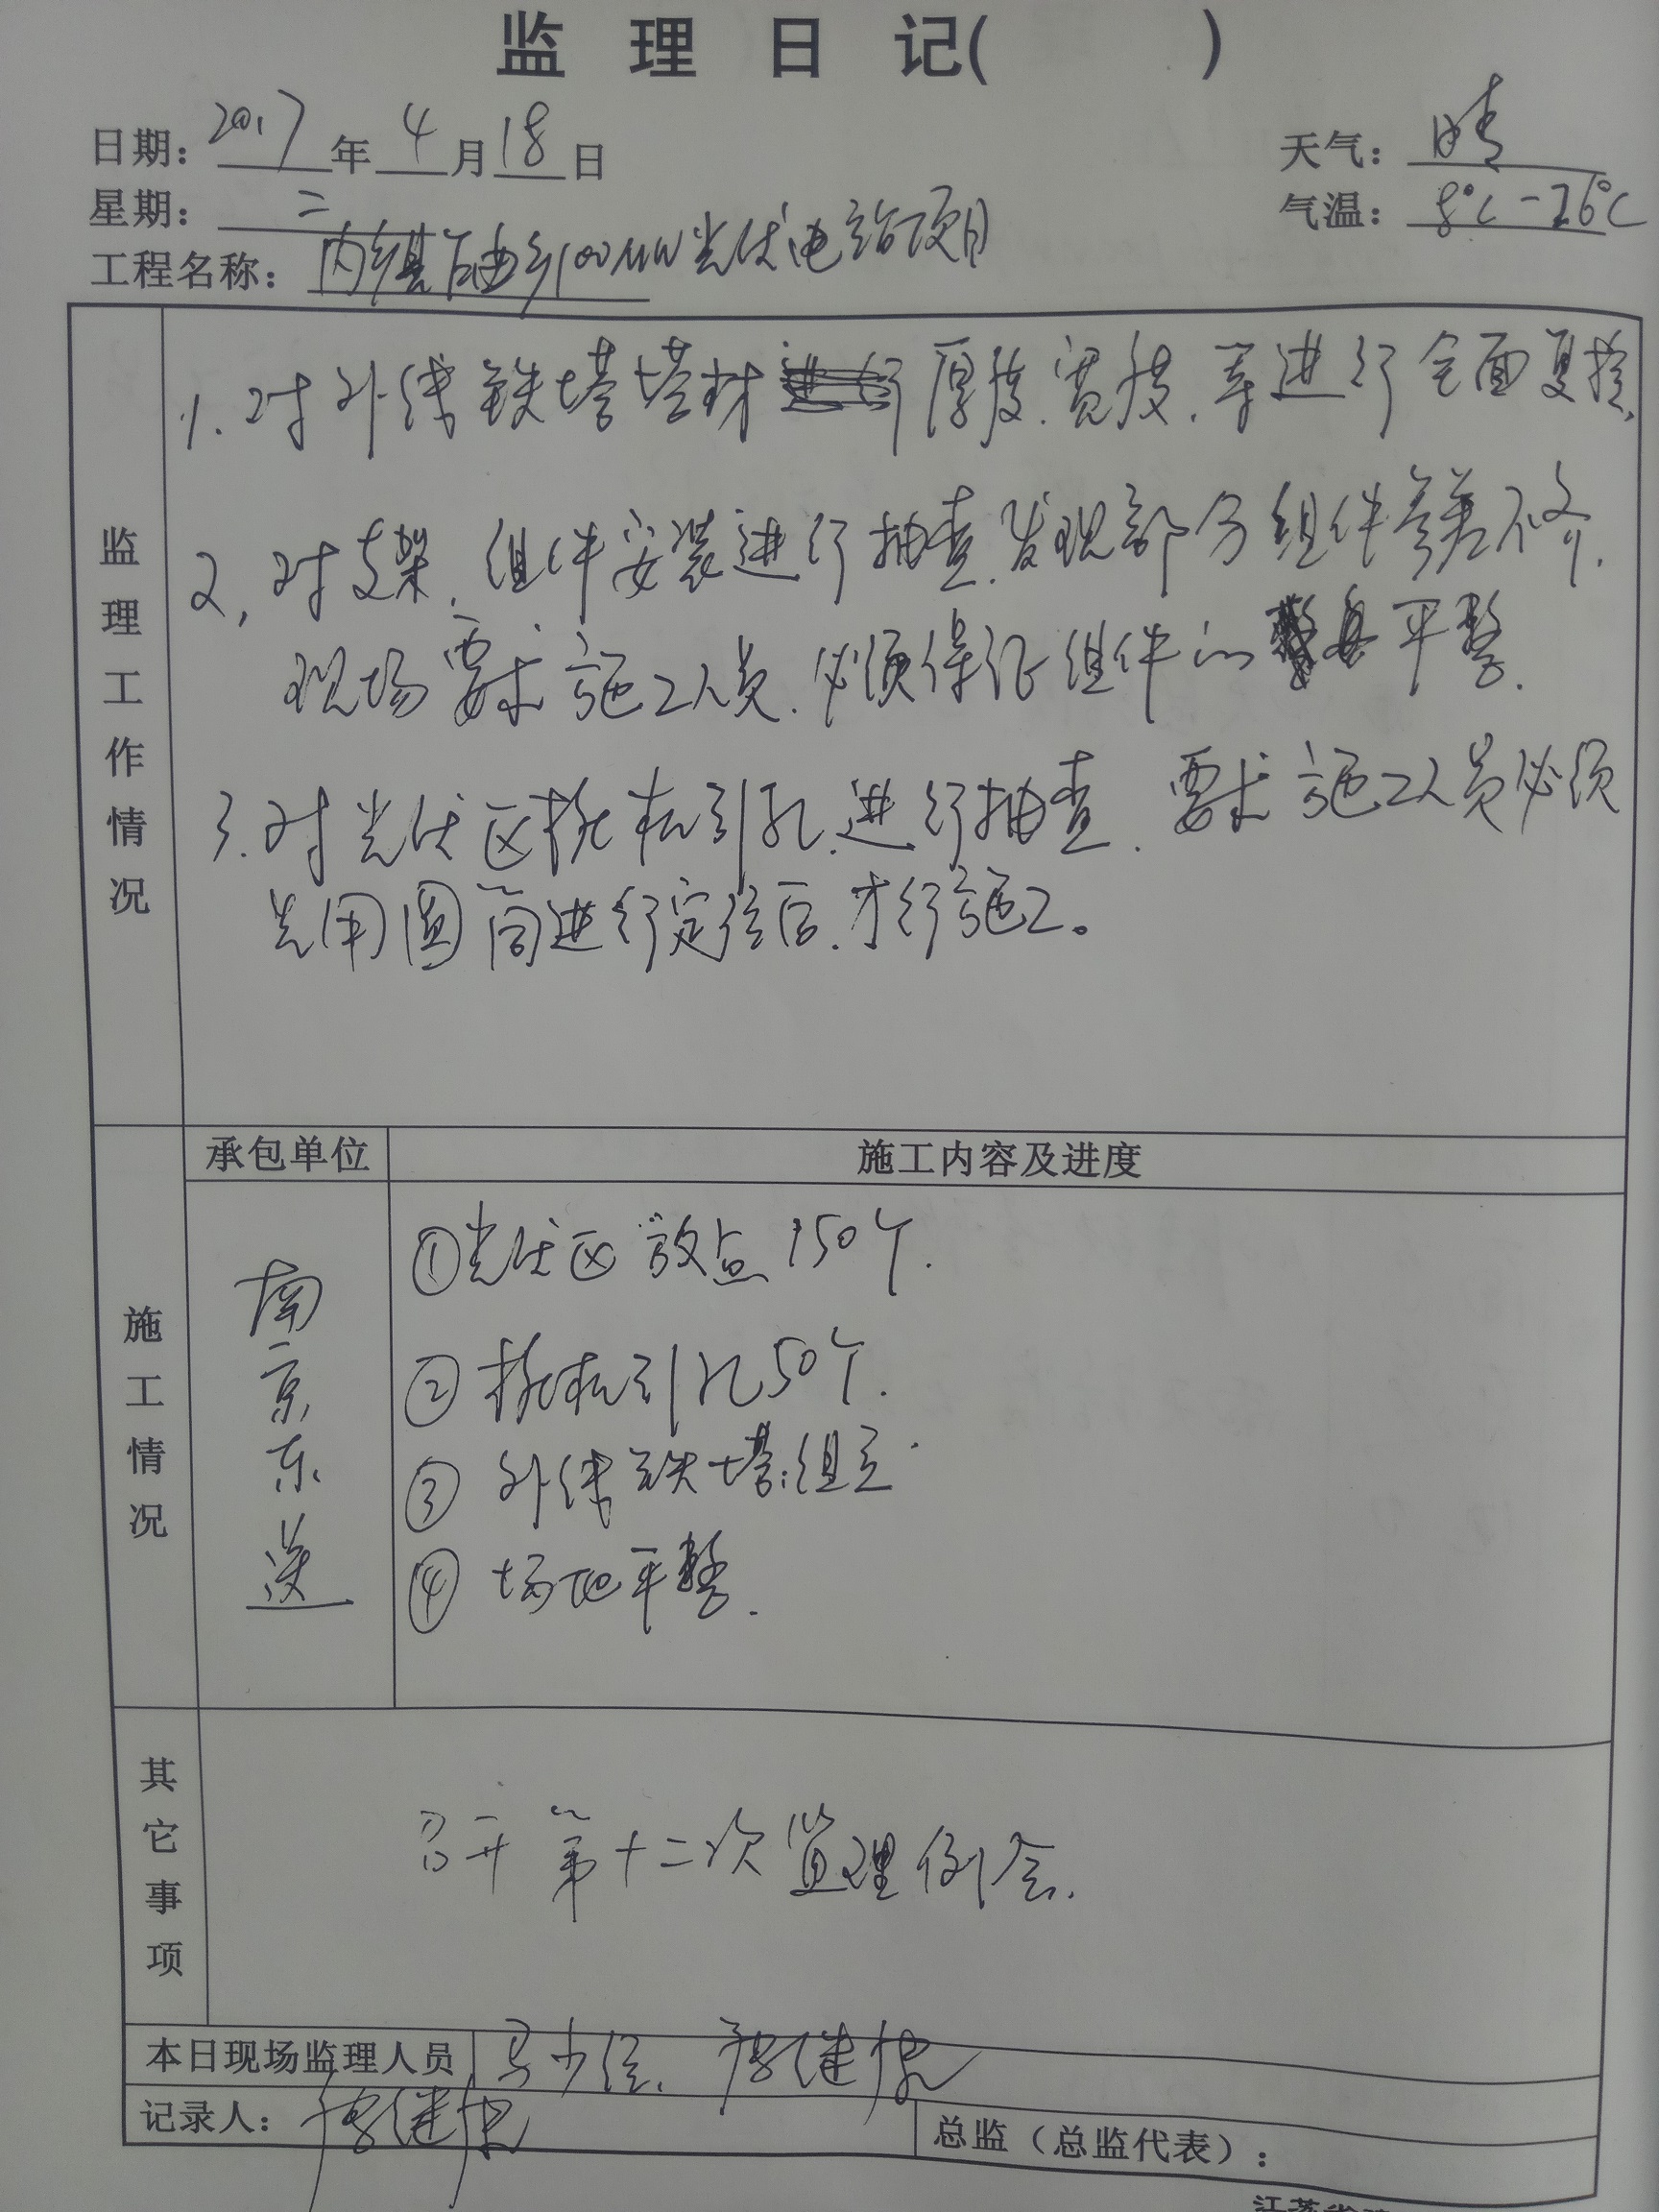 监理日记( )
日期：2017年4月18日
天气：晴
星期：二
气温：8℃-26℃
工程名称：内乡县瓦亩乡100MW光伏电站项目
监理工作情况
1.对外线铁塔塔材厚度.宽度.等进行全面复检.
2.对支架.组件安装进行抽查.发现部分组件参差不齐.
现场要求施工人员.必须保证组件的平整.
3.对光伏区桩机引孔.进行抽查.要求施工人员必须
先用圆筒进行定位后.才行施工。
承包单位
施工内容及进度
施工情况
南京东送
①光伏区放点150个.
②桩机引孔50个.
③外线铁塔组立.
④场地平整.
其它事项
召开第十二次监理例会.
本日现场监理人员
记录人：
总监（总监代表）：